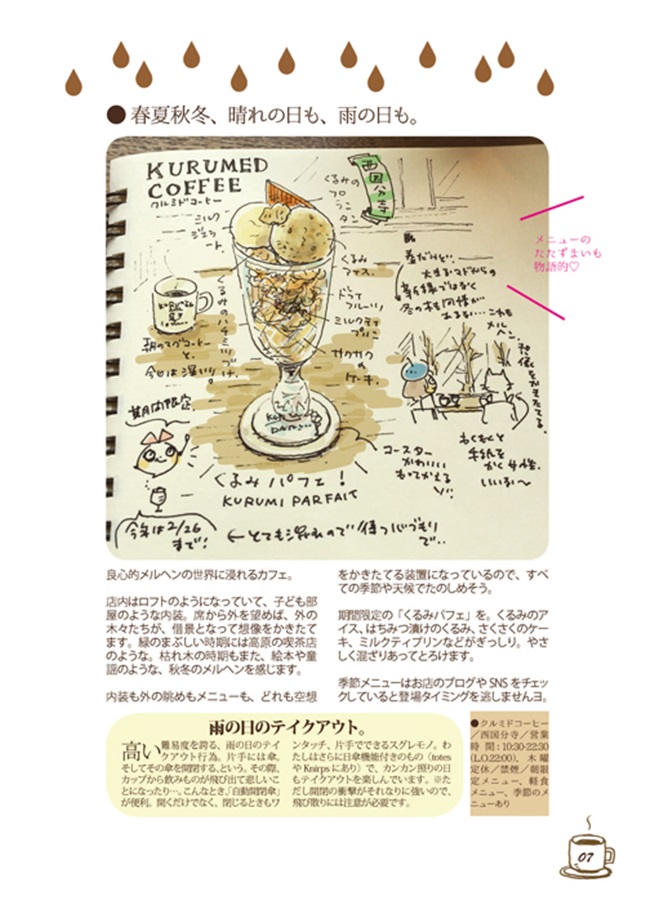 ● 春夏秋冬、晴れの日も、雨の日も。
KURUMED
COFFEE
クルミドコーヒー
西国分寺
くるみの
フロ
ランタン
ミルク
ジェラ
ート。
くるみ
アイス。
ドライ
フルーツ!
ミルクティ
プリン
サクサクの
ケーキ。
くるみのハチミツづけ。
朝のマグコーヒー
と。
今日は深いり。
これも
メル
ヘン。
想像をかきたてる。
もくもくと
手紙を
かく女性。
いいな〜
コースター
かわいい
もってかえる
期間限定
くるみパフェ!
KURUMI PARFAIT
今年は2/26
まで!
メニューの
たたずまいも
物語的♡
良心的メルヘンの世界に浸れるカフェ。
店内はロフトのようになっていて、子ども部
屋のような内装。席から外を望めば、外の
木々たちが、借景となって想像をかきたて
ます。緑のまぶしい時期には高原の喫茶店
のような。枯れ木の時期もまた、絵本や童
謡のような、秋冬のメルヘンを感じます。
内装も外の眺めもメニューも、どれも空想
をかきたてる装置になっているので、すべ
ての季節や天候でたのしめそう。
期間限定の「くるみパフェ」を。くるみのア
イス、はちみつ漬けのくるみ、さくさくのケー
キ、ミルクティプリンなどがぎっしり。やさ
しく混ざりあってとろけます。
季節メニューはお店のブログや SNS をチェッ
クしていると登場タイミングを逃しませんヨ。
雨の日のテイクアウト。
高い難易度を誇る、雨の日のテイ
クアウト行為。片手には傘。
そしてその傘を開閉する、という。その際、
カップから飲みものが飛び出て悲しいこ
とになったり…。こんなとき、「自動開閉傘」
が便利。開くだけでなく、閉じるときもワ
ンタッチ、片手でできるスグレモノ。わ
たしはさらに日傘機能付きのもの（totes
や Knirps にあり）で、カンカン照りの日
もテイクアウトを楽しんでいます。※た
だし開閉の衝撃がそれなりに強いので、
飛び散りには注意が必要です。
●クルミドコーヒー
／西国分寺／営業
時間：10:30-22:30
(L.O.22:00)、木曜
定休／禁煙／朝限
定メニュー、軽食
メニュー、季節のメ
ニューあり
07